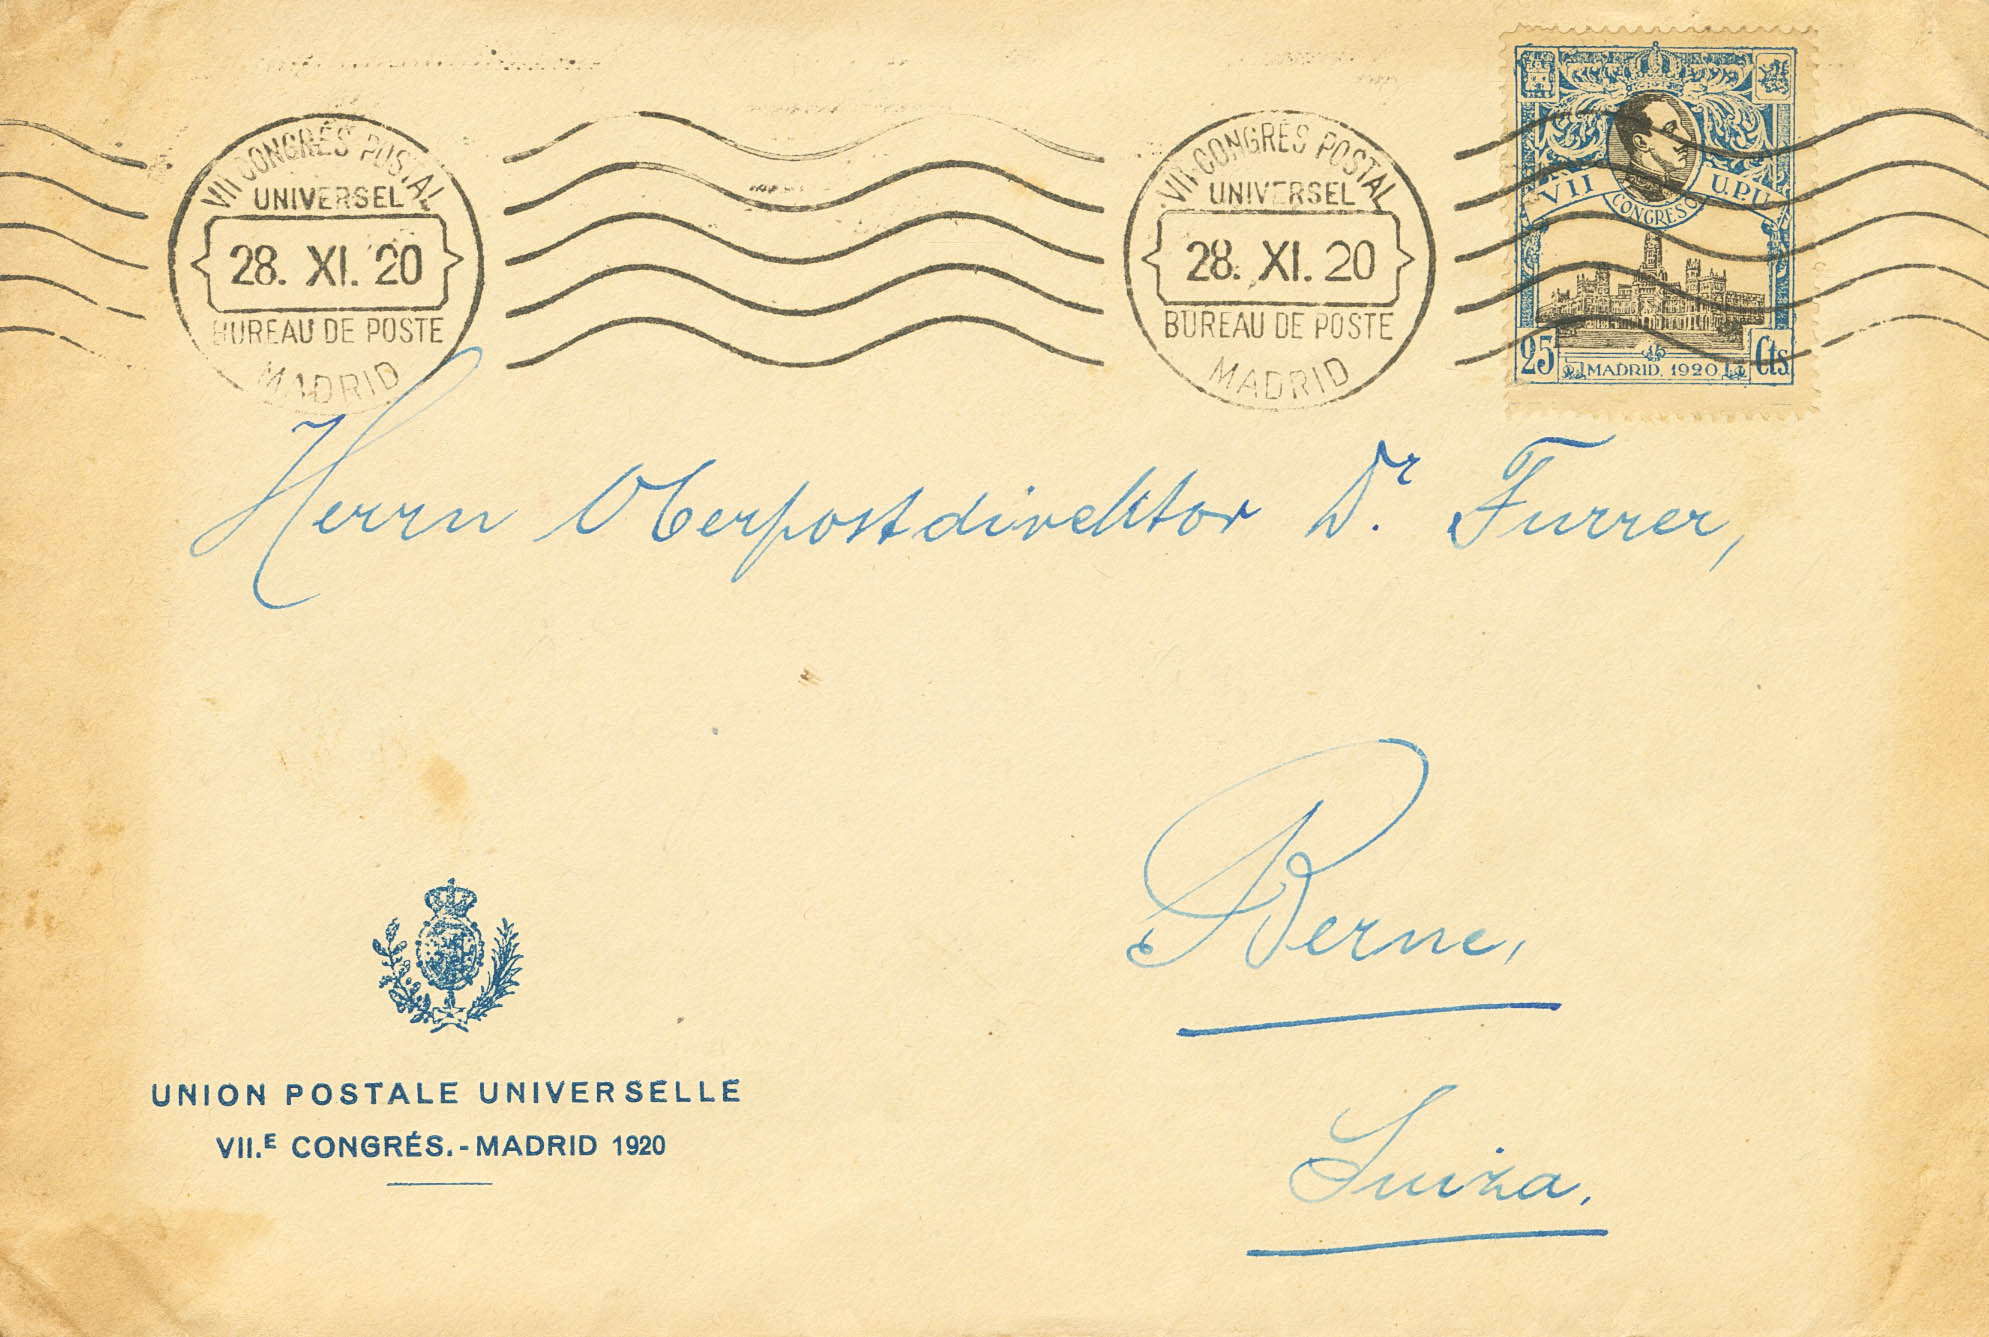 VII CONGRÉS POSTAL
UNIVERSEL
28. XI. 20
BUREAU DE POSTE
MADRID
VII CONGRÉS POSTAL
UNIVERSEL
28. XI. 20
BUREAU DE POSTE
MADRID
VII CONGRESO U.P.U.
25 Cts
MADRID, 1920
Herrn Oberpostdirektor Dr. Furrer,
Berne,
Suiza.
UNION POSTALE UNIVERSELLE
VII.E CONGRÉS.-MADRID 1920